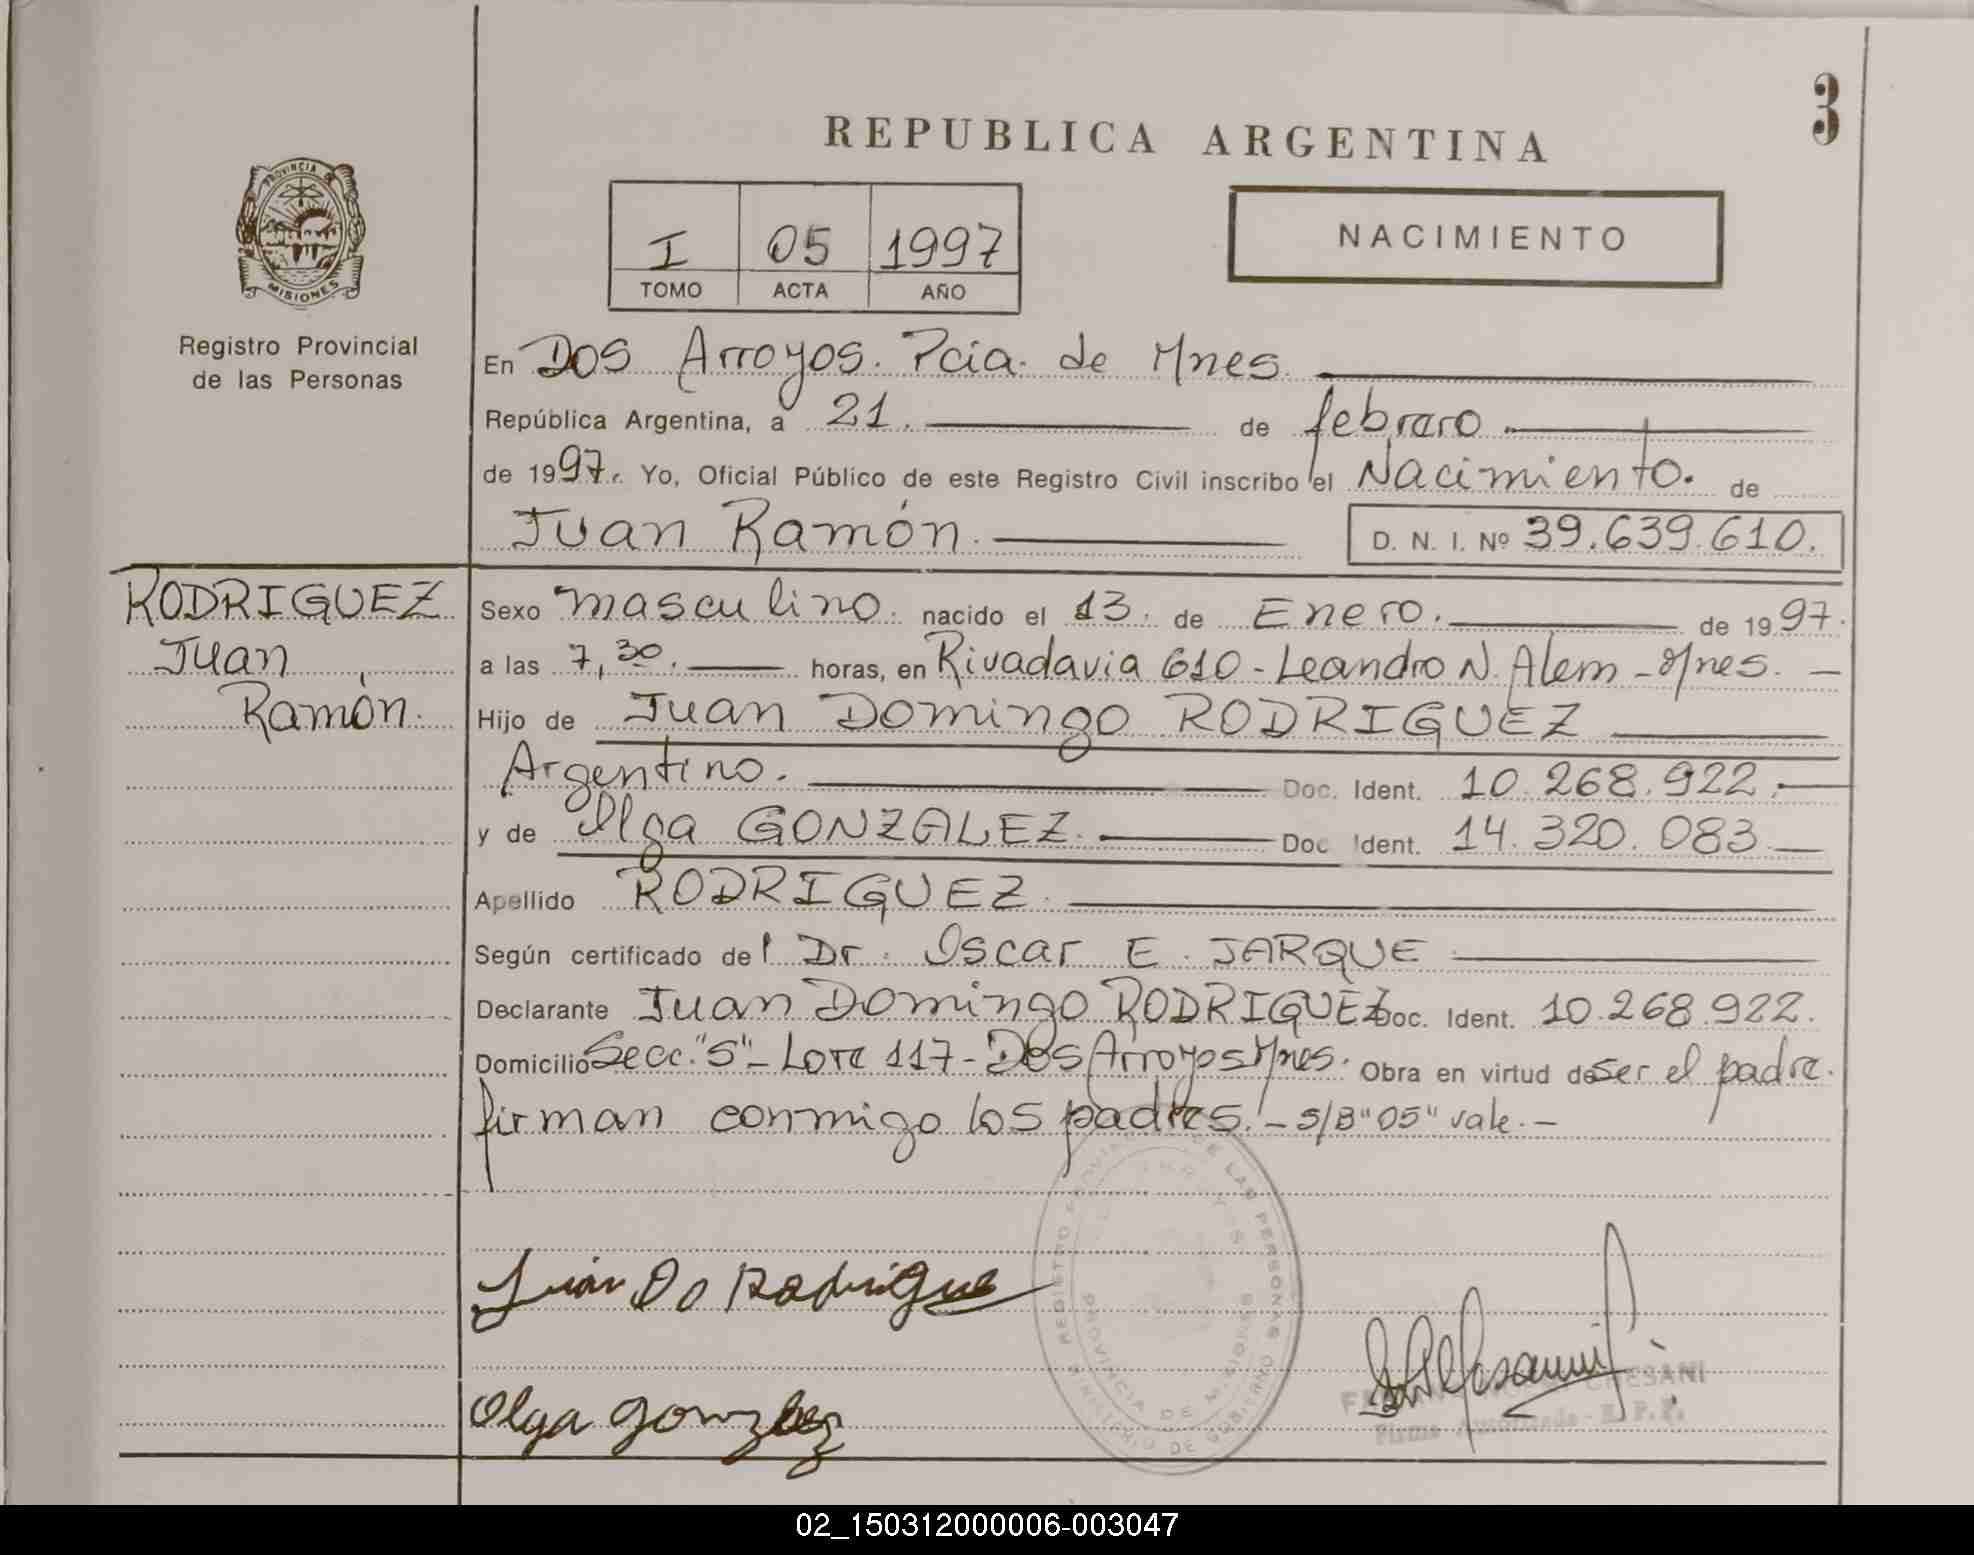 3
REPUBLICA ARGENTINA
PROVINCIA DE
MISIONES
Registro Provincial
de las Personas
I 05 1997
TOMO ACTA AÑO
NACIMIENTO
En Dos Arroyos. Pcia. de Mnes.
República Argentina, a 21. de febrero
de 1997. Yo, Oficial Público de este Registro Civil inscribo el Nacimiento. de
Juan Ramón. D. N. I. Nº 39.639.610.
RODRIGUEZ
Juan
Ramón.
Sexo masculino. nacido el 13. de Enero. de 1997.
a las 7,30. horas, en Rivadavia 610 - Leandro N. Alem - Mnes. -
Hijo de Juan Domingo RODRIGUEZ
Argentino. Doc. Ident. 10.268.922.
y de Olga GONZALEZ. Doc. Ident. 14.320.083
Apellido RODRIGUEZ.
Según certificado del Dr. Oscar E. JARQUE
Declarante Juan Domingo RODRIGUEZ Doc. Ident. 10.268.922.
Domicilio Secc. "5" - Lote 117 - Dos Arroyos Mnes. Obra en virtud de Ser el padre.
firman conmigo los padres. - S/B "05" vale. -
REGISTRO PROVINCIAL DE LAS PERSONAS
PROVINCIA DE MISIONES
MINISTERIO DE GOBIERNO
Juan Do Rodrigue
Olga Gonzalez
CRESANI
Firma Autorizada - R. P. P.
02_150312000006-003047